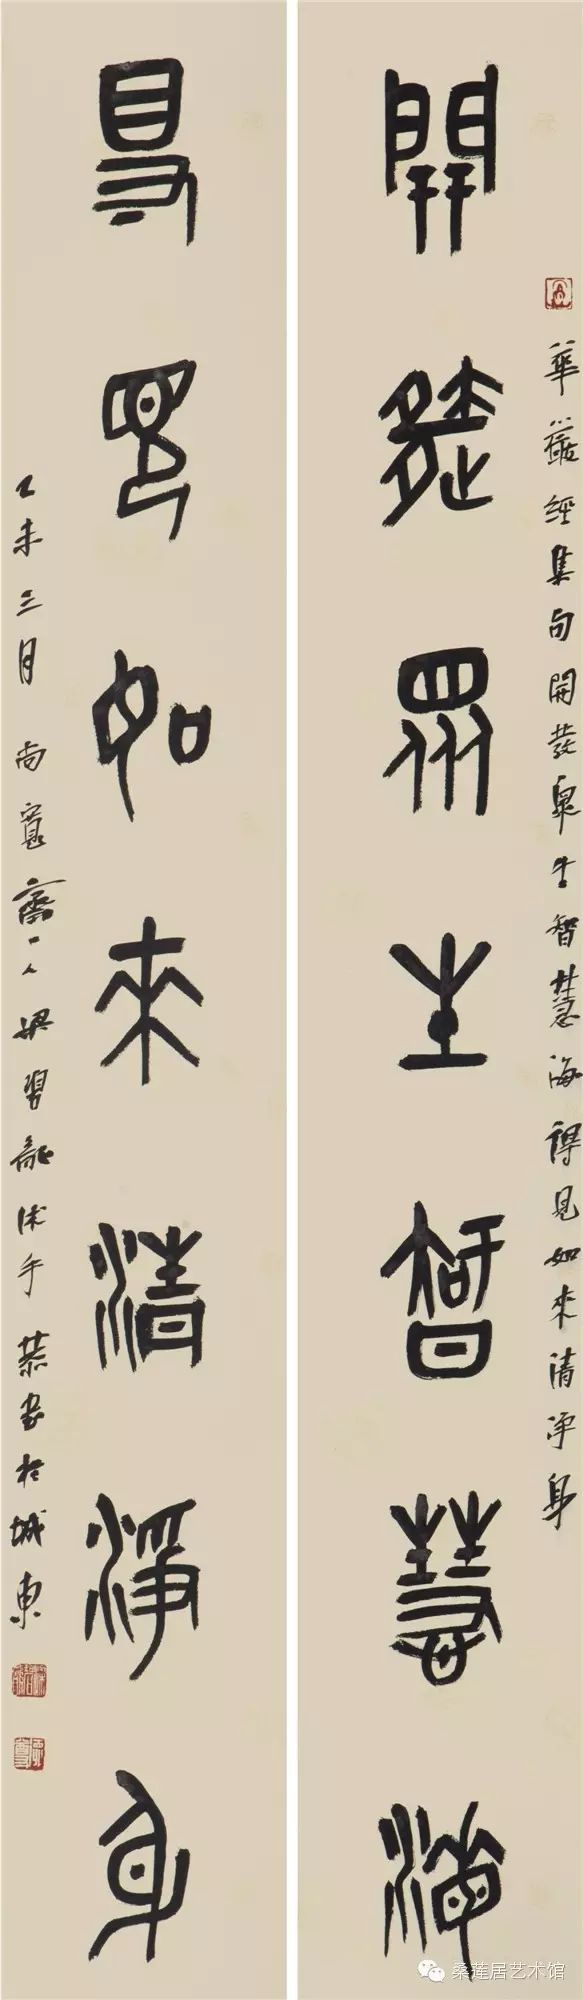 開發眾生智慧海
華嚴經集句開發眾生智慧海得見如來清淨身
得見如來清淨身
乙未三月尚寬齋一人梁習龍沐手恭書於城東
桑莲居艺术馆